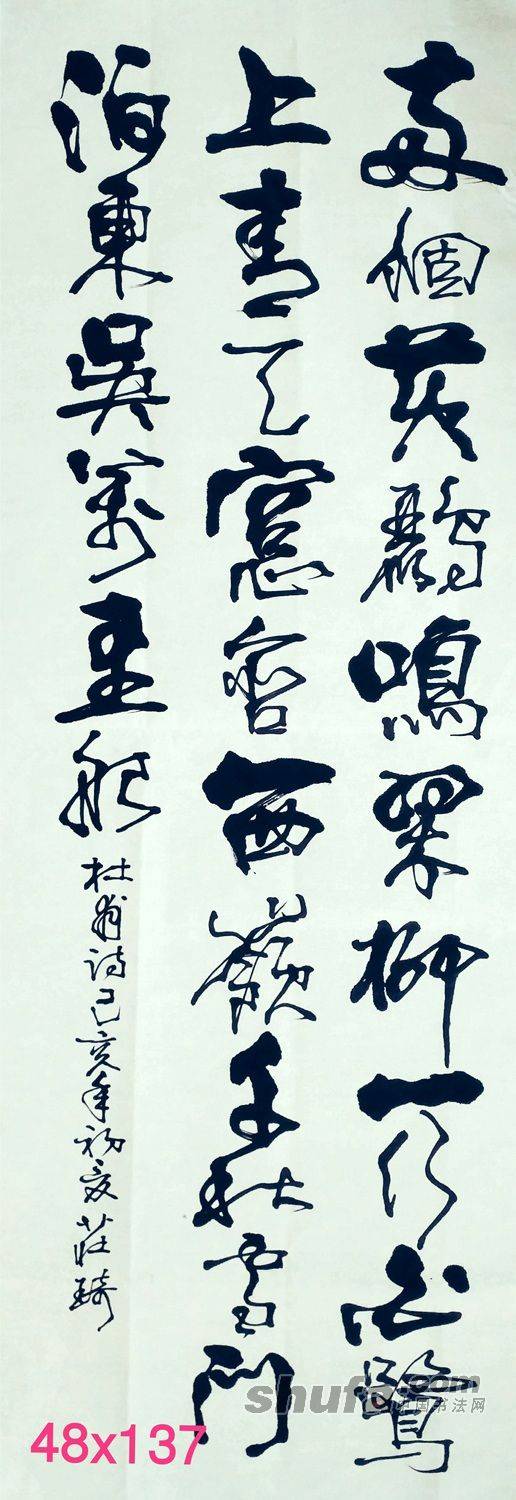 两個黄鸝鳴翠柳一行白鷺
上青天窻含西嶺千秋雪門
泊東吳萬里船
杜甫詩己亥年初夏莊琦
shufa.com
中国书法网
48x137